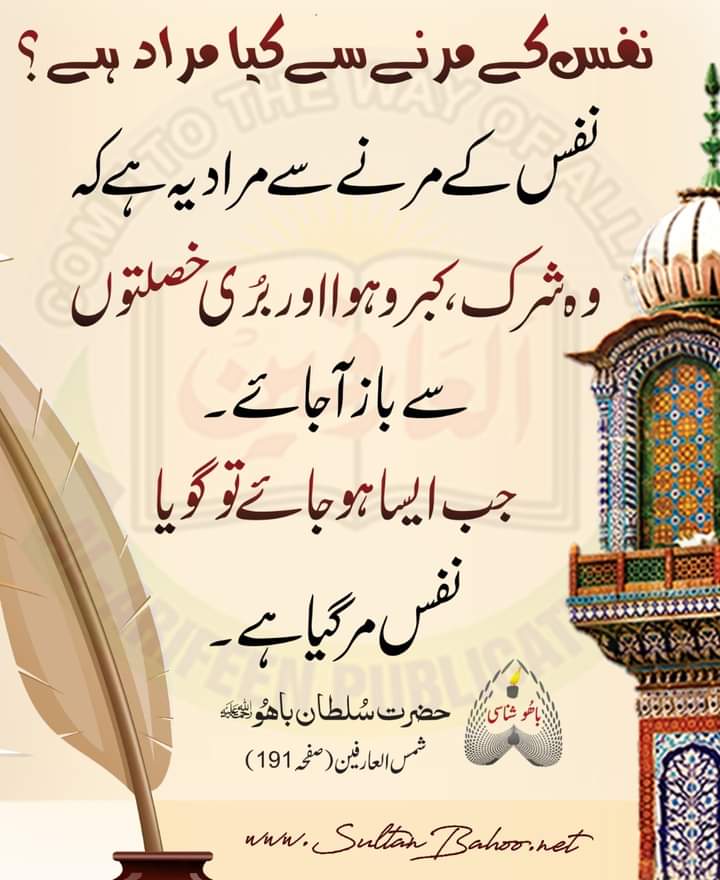 نفس کے مرنے سے کیا مراد ہے؟
نفس کے مرنے سے مراد یہ ہے کہ
وہ شرک، کبر و ہوا اور بُری خصلتوں
سے باز آ جائے۔
جب ایسا ہو جائے تو گویا
نفس مر گیا ہے۔
باھُو شناسی
حضرت سُلطان باھُوؒ
شمس العارفین (صفحہ 191)
www.SultanBahoo.net
COME TO THE WAY OF ALLAH
العارفین
AL-ARIFEEN PUBLICATI